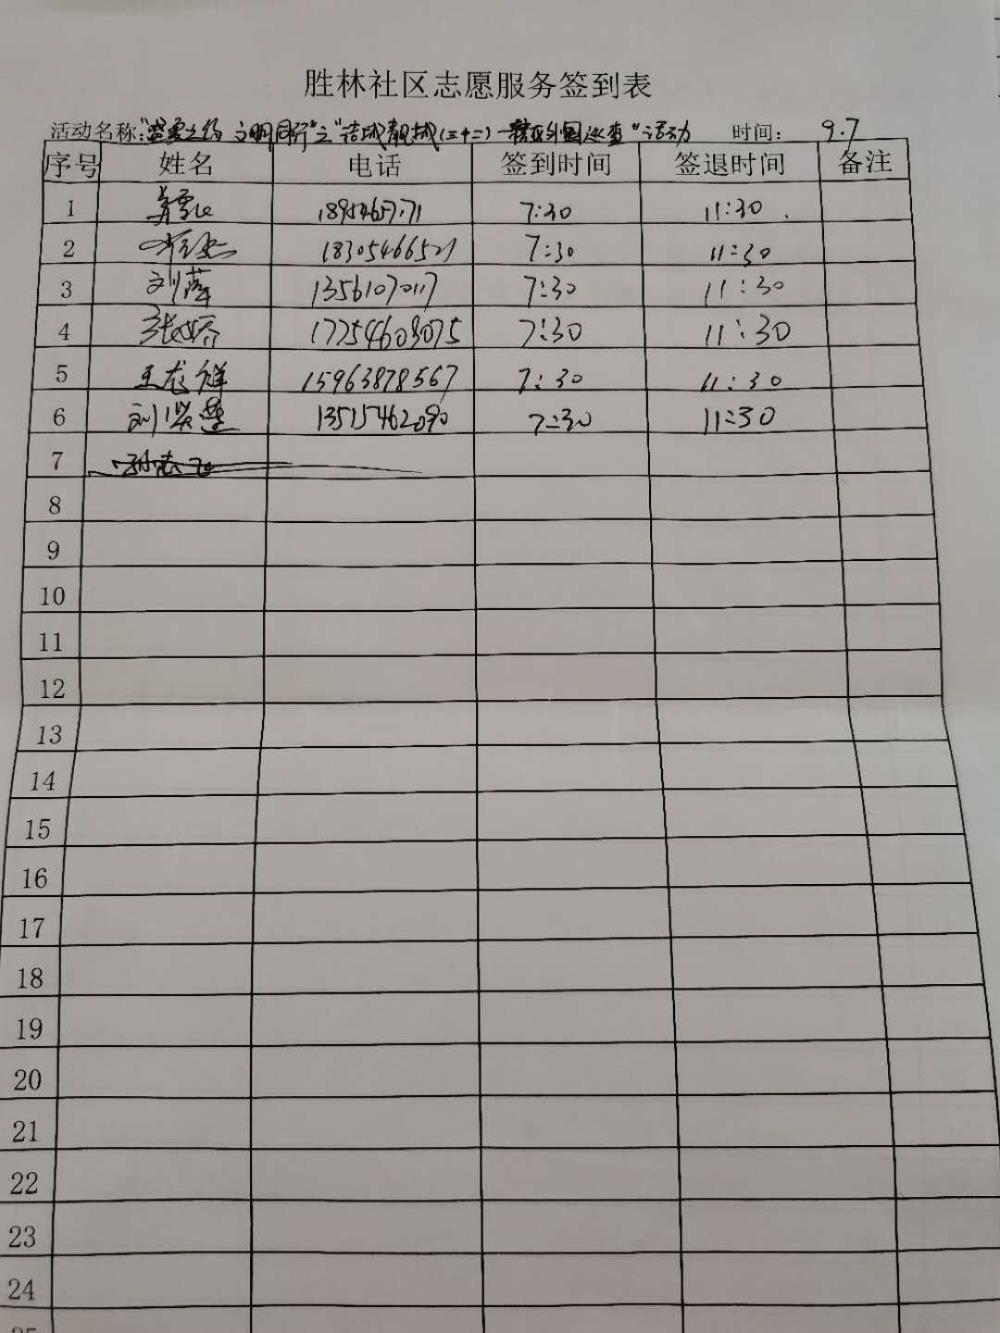 胜林社区志愿服务签到表
活动名称:"志愿之行 文明同行"之"洁城靓城(三十二)—辖区外围巡查"活动 时间: 9.7
序号 姓名 电话 签到时间 签退时间 备注
1 7:30 11:30
2 7:30 11:30
3 刘萍 13561070117 7:30 11:30
4 17254603075 7:30 11:30
5 王龙祥 15963878567 7:30 11:30
6 13515462090 7:30 11:30
7
8
9
10
11
12
13
14
15
16
17
18
19
20
21
22
23
24
25